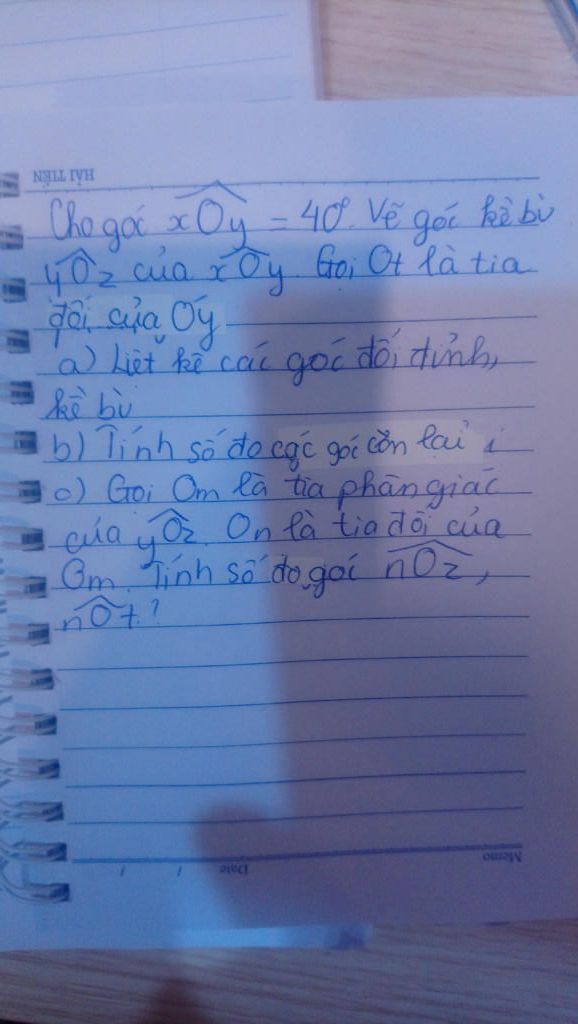 HẢI TIẾN
Cho góc xOy = 40°. Vẽ góc kề bù
yOz của xOy. Gọi Ot là tia
đối của Oy
a) Liệt kê các góc đối đỉnh,
kề bù
b) Tính số đo các góc còn lại
c) Gọi Om là tia phân giác
của yOz. On là tia đối của
Om. Tính số đo góc nOz,
nOt?
Memo
Date / /